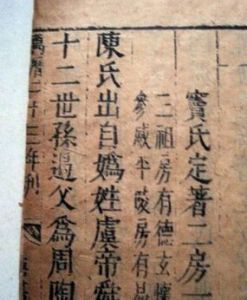 竇氏定著二房一
三祖房有德玄懷
參咸平陵房有
陳氏出自媯姓虞帝舜
十二世孫遏父為周陶
萬曆二十三年刊